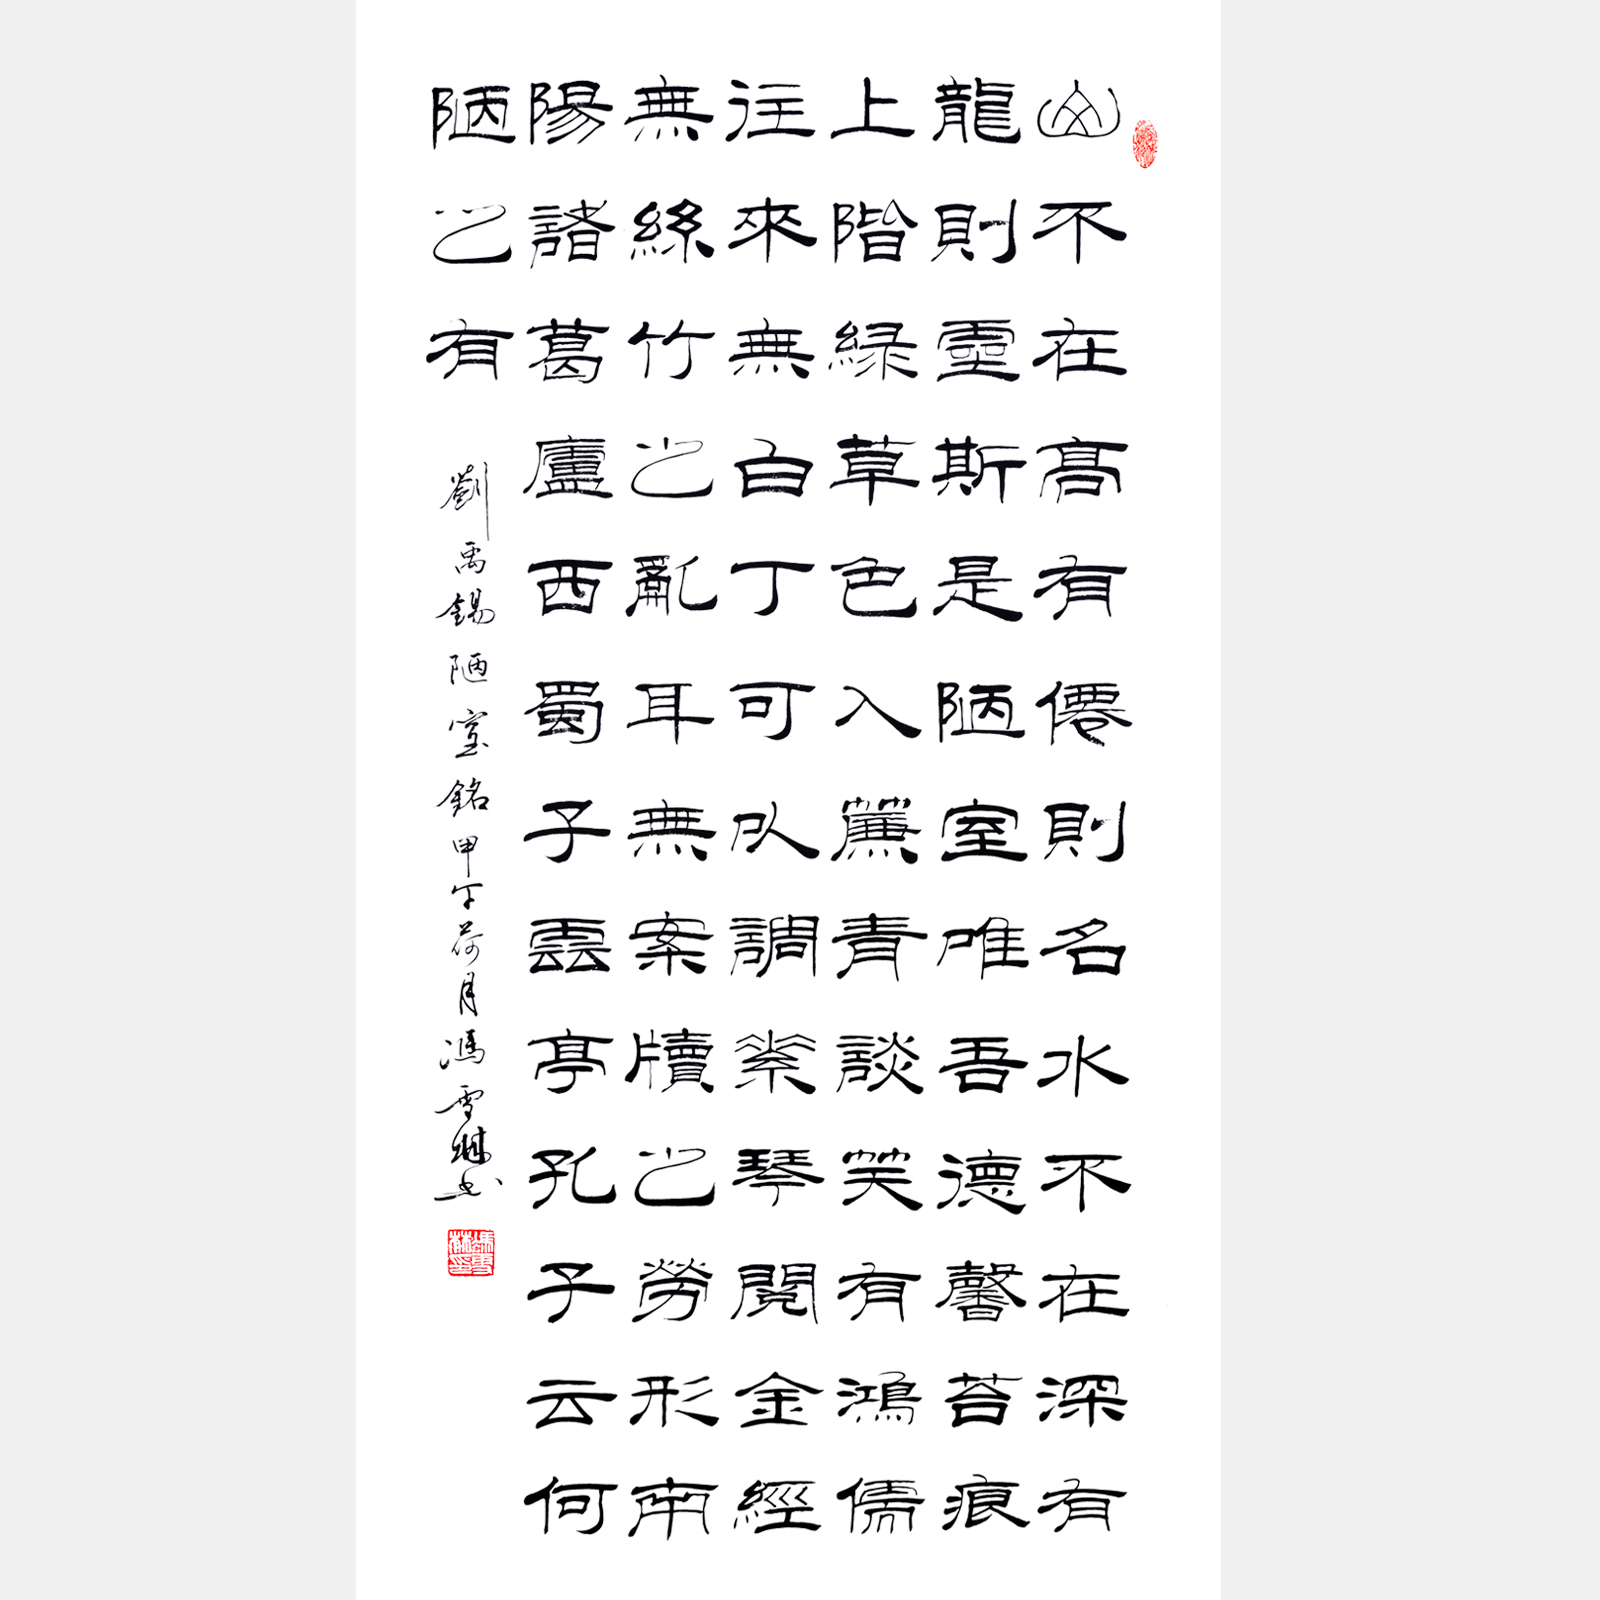 山不在高有僊則名水不在深有
龍則靈斯是陋室唯吾德馨苔痕
上階緑草色入簾青談笑有鴻儒
往來無白丁可以調素琴閱金經
無絲竹之亂耳無案牘之勞形南
陽諸葛廬西蜀子雲亭孔子云何
陋之有
劉禹錫陋室銘甲午荷月馮雪林书